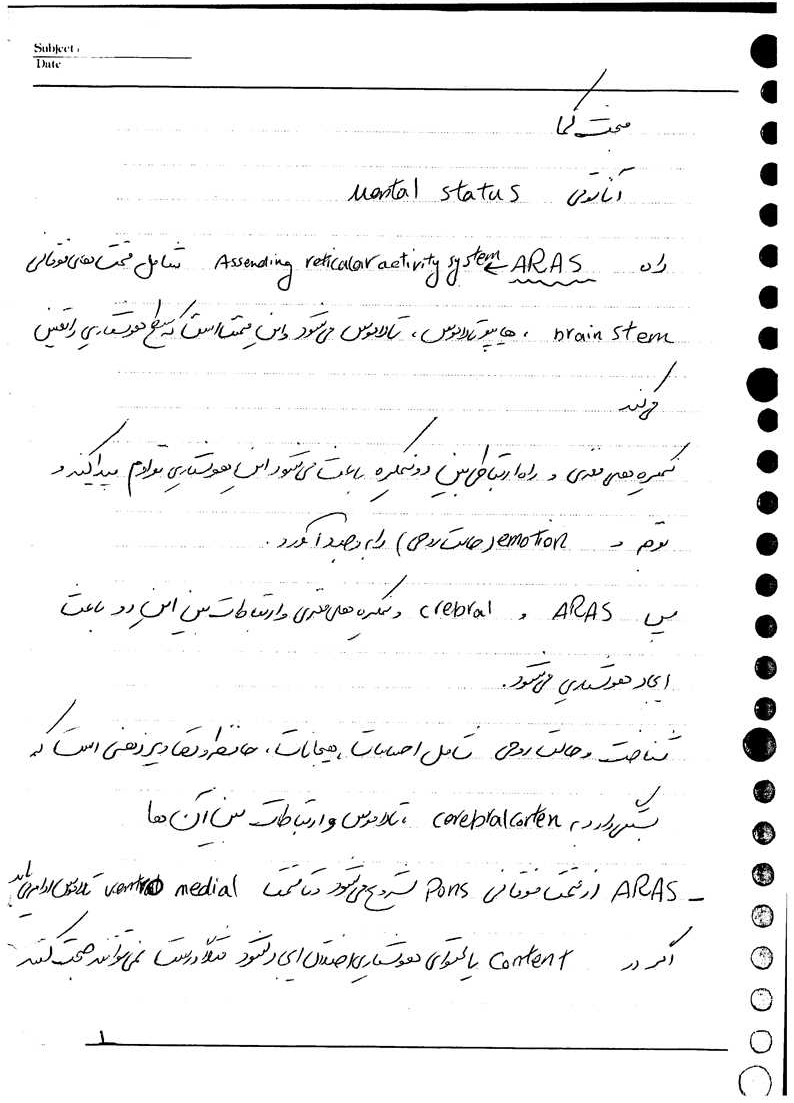 Subject :
Date
مبحث کما
آناتومی Mental status
راه ARAS ← Assending reticular activity system شامل قسمت های فوقانی
brain stem ، هیپوتالاموس ، تالاموس می شود و این قسمت است که سطح هوشیاری را تعیین
می کند
نیمکره های مغزی و راه ارتباطی بین دو نیمکره باعث می شود این هوشیاری تداوم پیدا کند و
و emotion (حالت روحی) را بوجود آورد .
پس ARAS و crebral و نیمکره های مغزی و ارتباطات بین این دو باعث
ایجاد هوشیاری می شود .
شناخت و حالت روحی شامل احساسات ، هیجانات ، حافظه و تصاویر ذهنی است که
بستگی دارد به cerebral corten ، تالاموس و ارتباطات بین آن ها
- ARAS از قسمت فوقانی Pons شروع می شود و تا قسمت ventro medial تالاموس ادامه می یابد
اگر در content یا محتوای هوشیاری اختلال ایجاد شود مثلا درست نمی توانند صحبت کنند
1